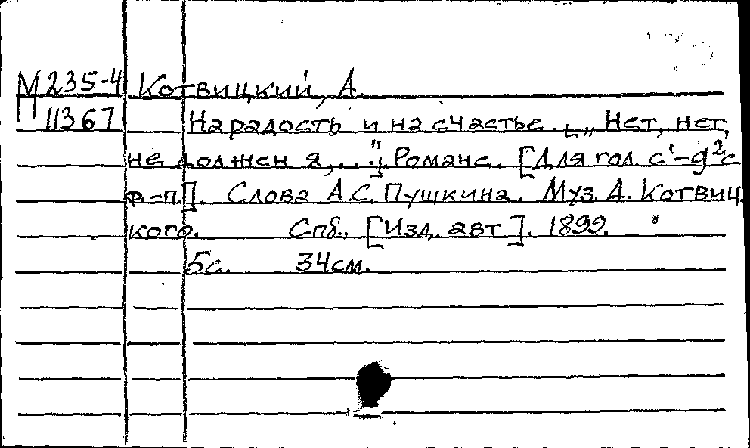 М 235-4 Котвицкий, А.
П 11367 На радость и на счастье. [„Нет, нет,
не должен я,..."]. Романс. [Для гол. c¹-g² с
ф-п.]. Слова А.С. Пушкина. Муз. А. Котвиц
кого. Спб., [Изд. авт.]. 1899.
5с. 34см.